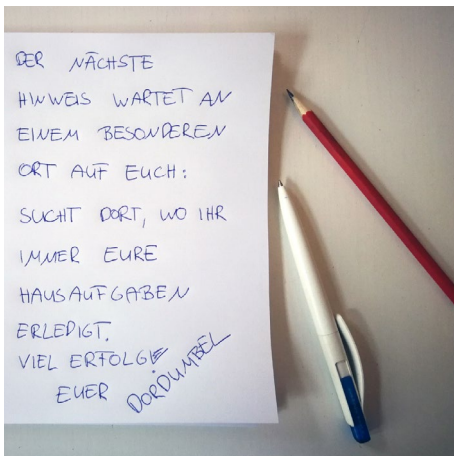 DER NÄCHSTE
HINWEIS WARTET AN
EINEM BESONDEREN
ORT AUF EUCH:
SUCHT DORT, WO IHR
IMMER EURE
HAUSAUFGABEN
ERLEDIGT.
VIEL ERFOLG!
EUER DORDUMBEL